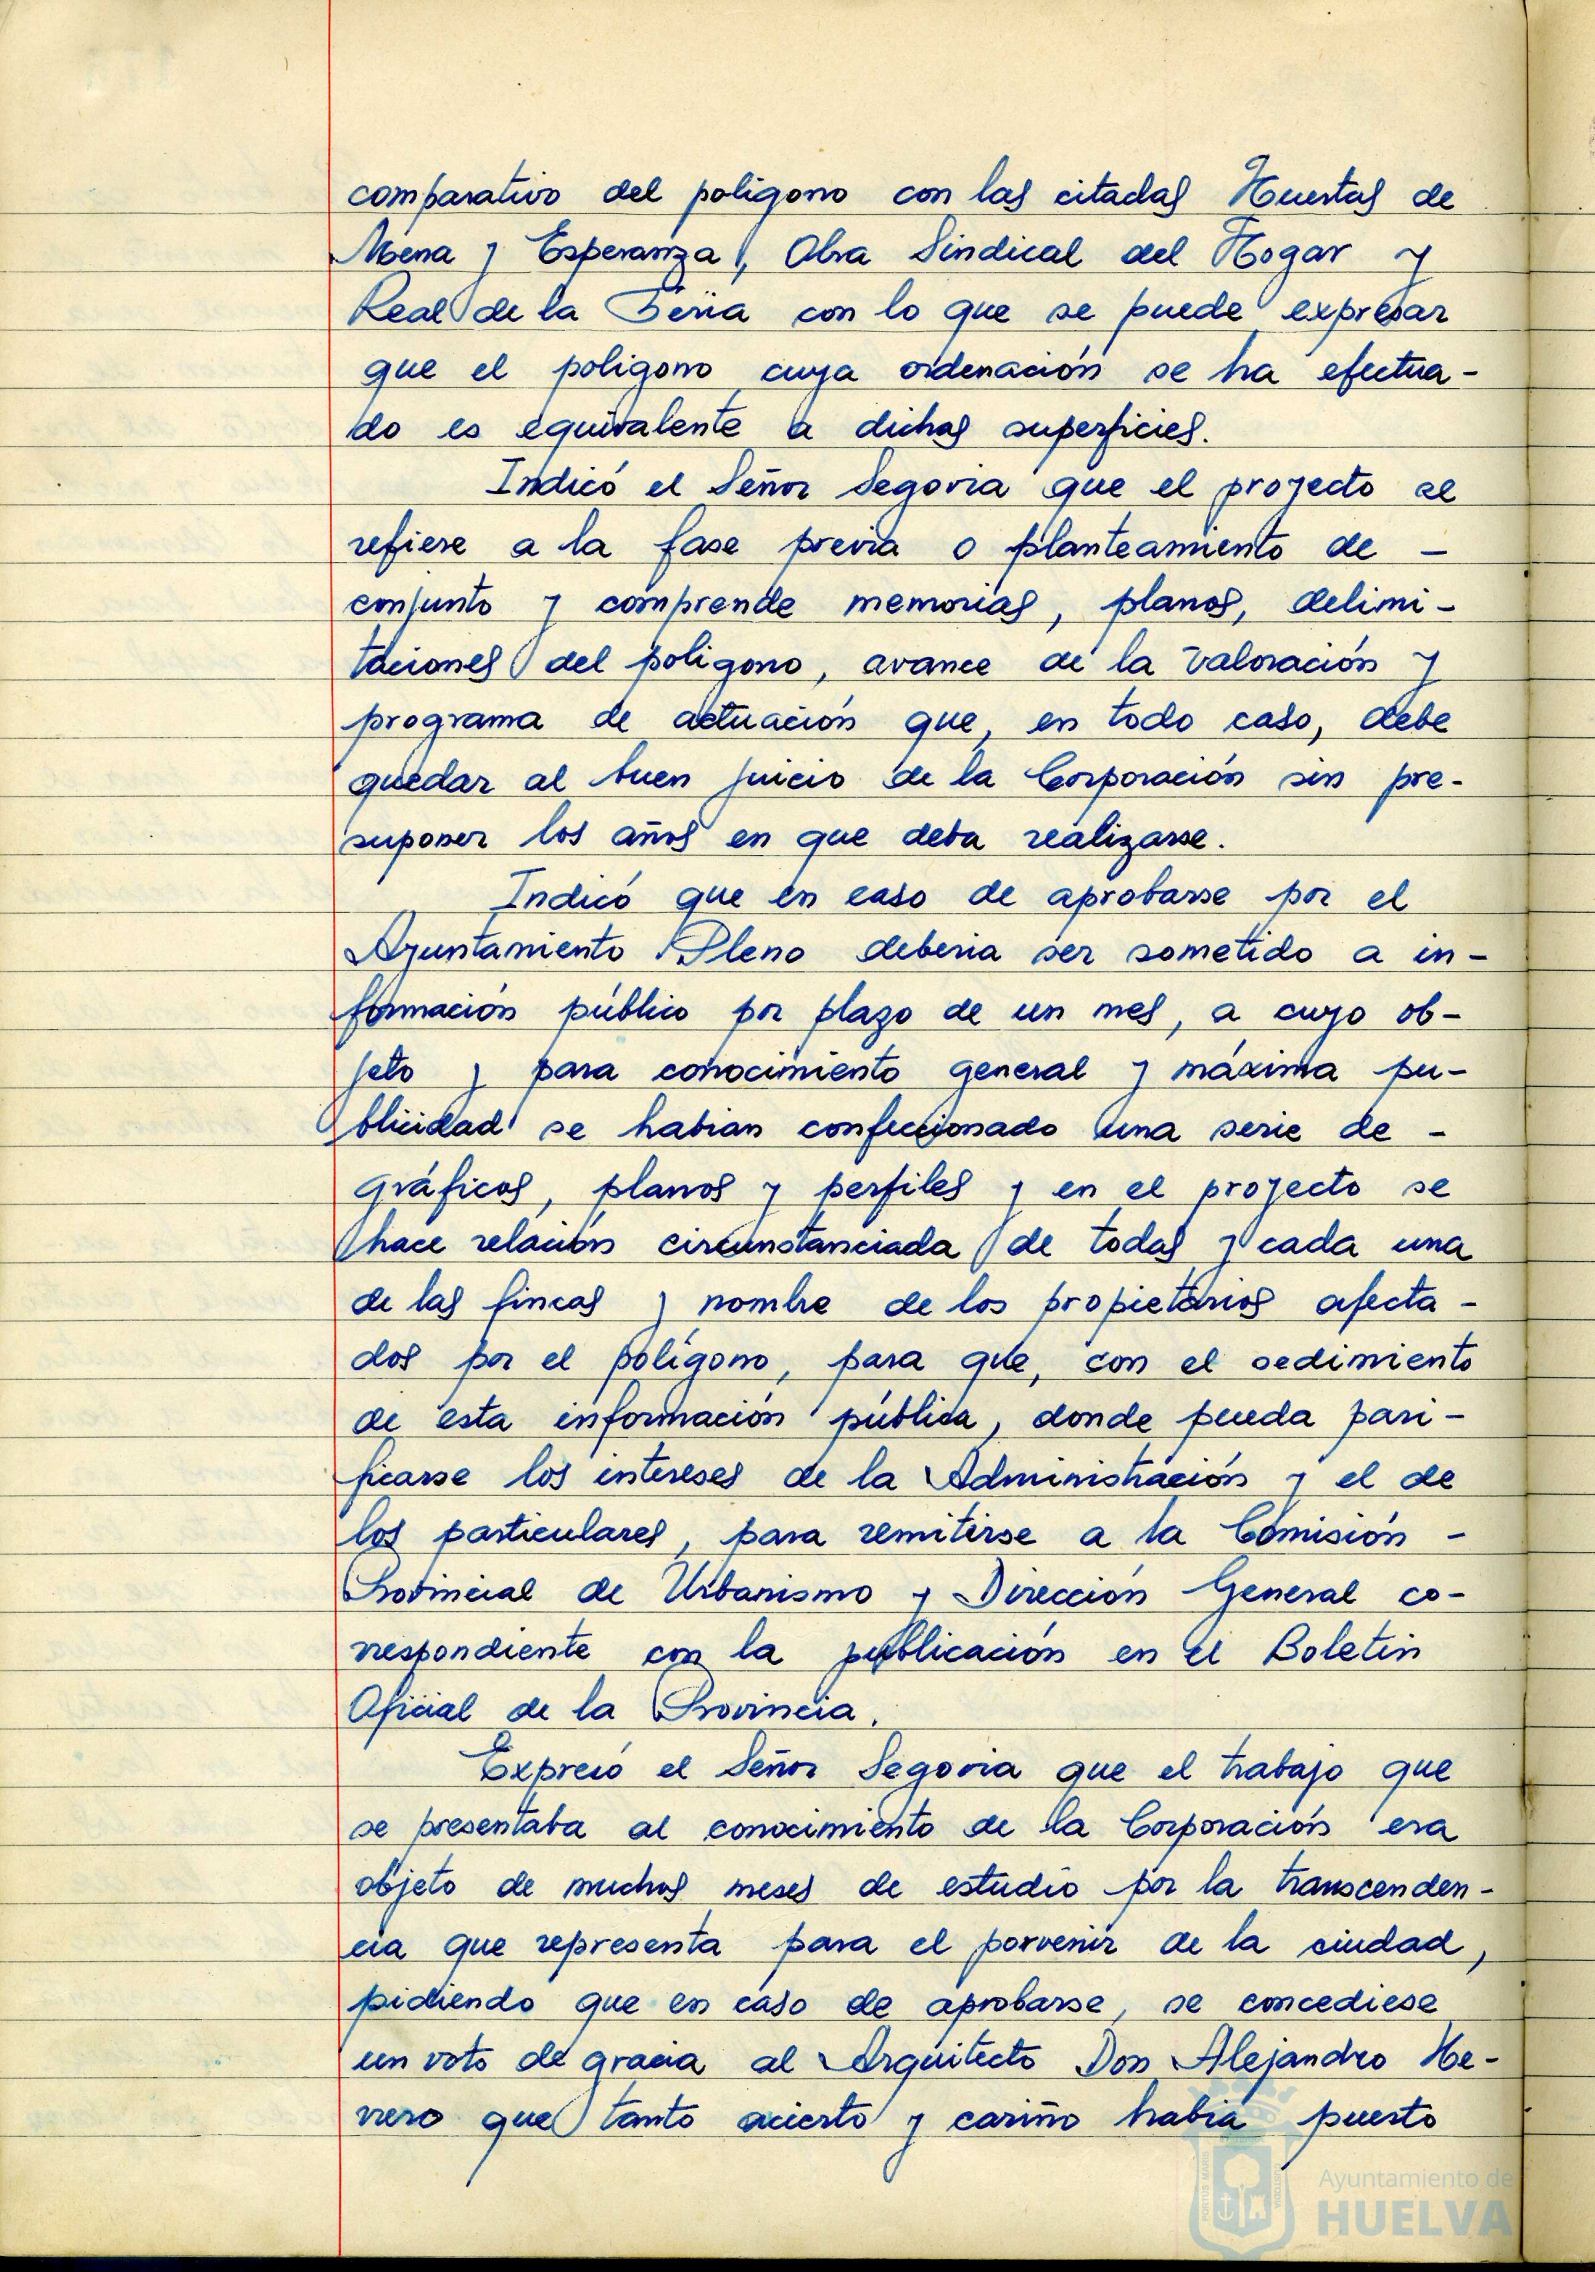 comparativo del poligono con las citadas Huertas de
Mena y Esperanza, Obra Sindical del Hogar y
Real de la Feria con lo que se puede expresar
que el poligono cuya ordenación se ha efectua-
do es equivalente a dichas superficies.
Indicó el Señor Segovia que el proyecto se
refiere a la fase previa o planteamiento de -
conjunto y comprende memorias, planos, delimi-
taciones del poligono, avance de la valoración y
programa de actuación que, en todo caso, debe
quedar al buen juicio de la Corporación sin pre-
suponer los años en que deba realizarse.
Indicó que en caso de aprobarse por el
Ayuntamiento Pleno deberia ser sometido a in-
formación público por plazo de un mes, a cuyo ob-
jeto y para conocimiento general y máxima pu-
blicidad se habian confeccionado una serie de -
gráficos, planos y perfiles y en el proyecto se
hace relación circunstanciada de todas y cada una
de las fincas y nombre de los propietarios afecta-
dos por el polígono, para que, con el sedimiento
de esta información pública, donde pueda pari-
ficarse los intereses de la Administración y el de
los particulares, para remitirse a la Comisión -
Provincial de Urbanismo y Dirección General co-
rrespondiente con la publicación en el Boletin
Oficial de la Provincia.
Expresó el Señor Segovia que el trabajo que
se presentaba al conocimiento de la Corporación era
objeto de muchos meses de estudio por la transcenden-
cia que representa para el porvenir de la ciudad,
pidiendo que en caso de aprobarse, se concediese
un voto de gracia al Arquitecto Don Alejandro He-
rrero que tanto acierto y cariño habia puesto
Ayuntamiento de
HUELVA
PORTUS MARIS
CUSTODIA